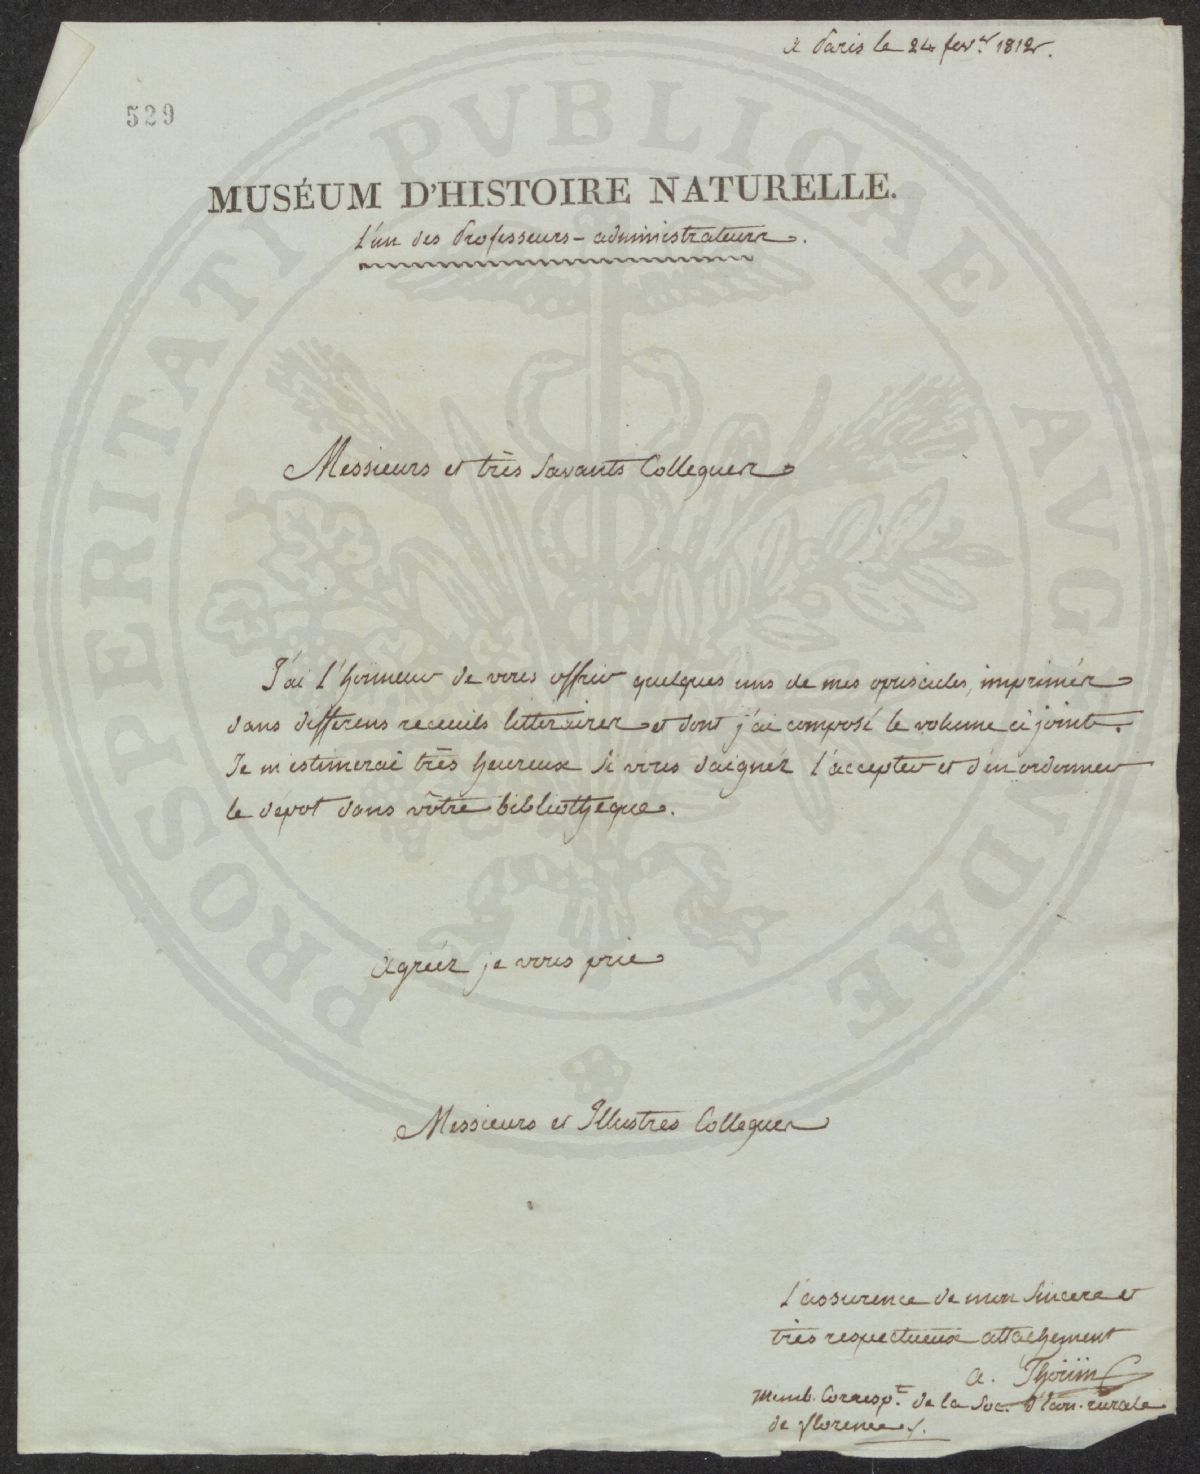 a Paris le 24 fevr. 1812.
529
MUSÉUM D'HISTOIRE NATURELLE.
L'un des Professeurs-administrateurs.
Messieurs et très Savants Collegues
J'ai l'honneur de vous offrir quelques uns de mes opuscules, imprimés
dans differens receuils litteraires et dont j'ai composé le volume ci joint.
Je m'estimerai très heureux Si vous daignéz l'accepter et d'en ordonner
le dépot dans vôtre bibliotheque.
agréez je vous prie
Messieurs et Illustres Collegues
l'assurence de mon Sincere et
très respectueux attachement
a. Thoüin
Memb. Corresp.t de la Soc. d'Econ. rurale
de florence
PROSPERITATI PVBLICAE AVGENDAE